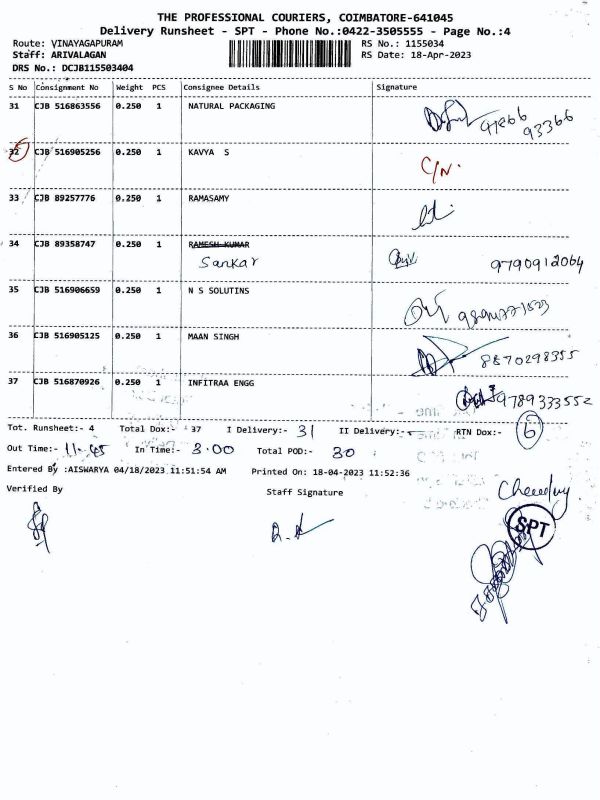 THE PROFESSIONAL COURIERS, COIMBATORE-641045
Delivery Runsheet - SPT - Phone No.:0422-3505555 - Page No.:4
Route: VINAYAGAPURAM RS No.: 1155034
Staff: ARIVALAGAN RS Date: 18-Apr-2023
DRS No.: DCJB115503404
S No Consignment No Weight PCS Consignee Details Signature
31 CJB 516863556 0.250 1 NATURAL PACKAGING
93366
32 CJB 516905256 0.250 1 KAVYA S C/N.
33 CJB 89257776 0.250 1 RAMASAMY
34 CJB 89358747 0.250 1 RAMESH KUMAR
Sankar 9790912064
35 CJB 516906659 0.250 1 N S SOLUTINS
36 CJB 516905125 0.250 1 MAAN SINGH 8870298355
37 CJB 516870926 0.250 1 INFITRAA ENGG 9789333552
Tot. Runsheet:- 4 Total Dox:- 37 I Delivery:- 31 II Delivery:- RTN Dox:- 6
Out Time:- 11.45 In Time:- 3.00 Total POD:- 30
Entered By :AISWARYA 04/18/2023 11:51:54 AM Printed On: 18-04-2023 11:52:36
Verified By Staff Signature
SPT